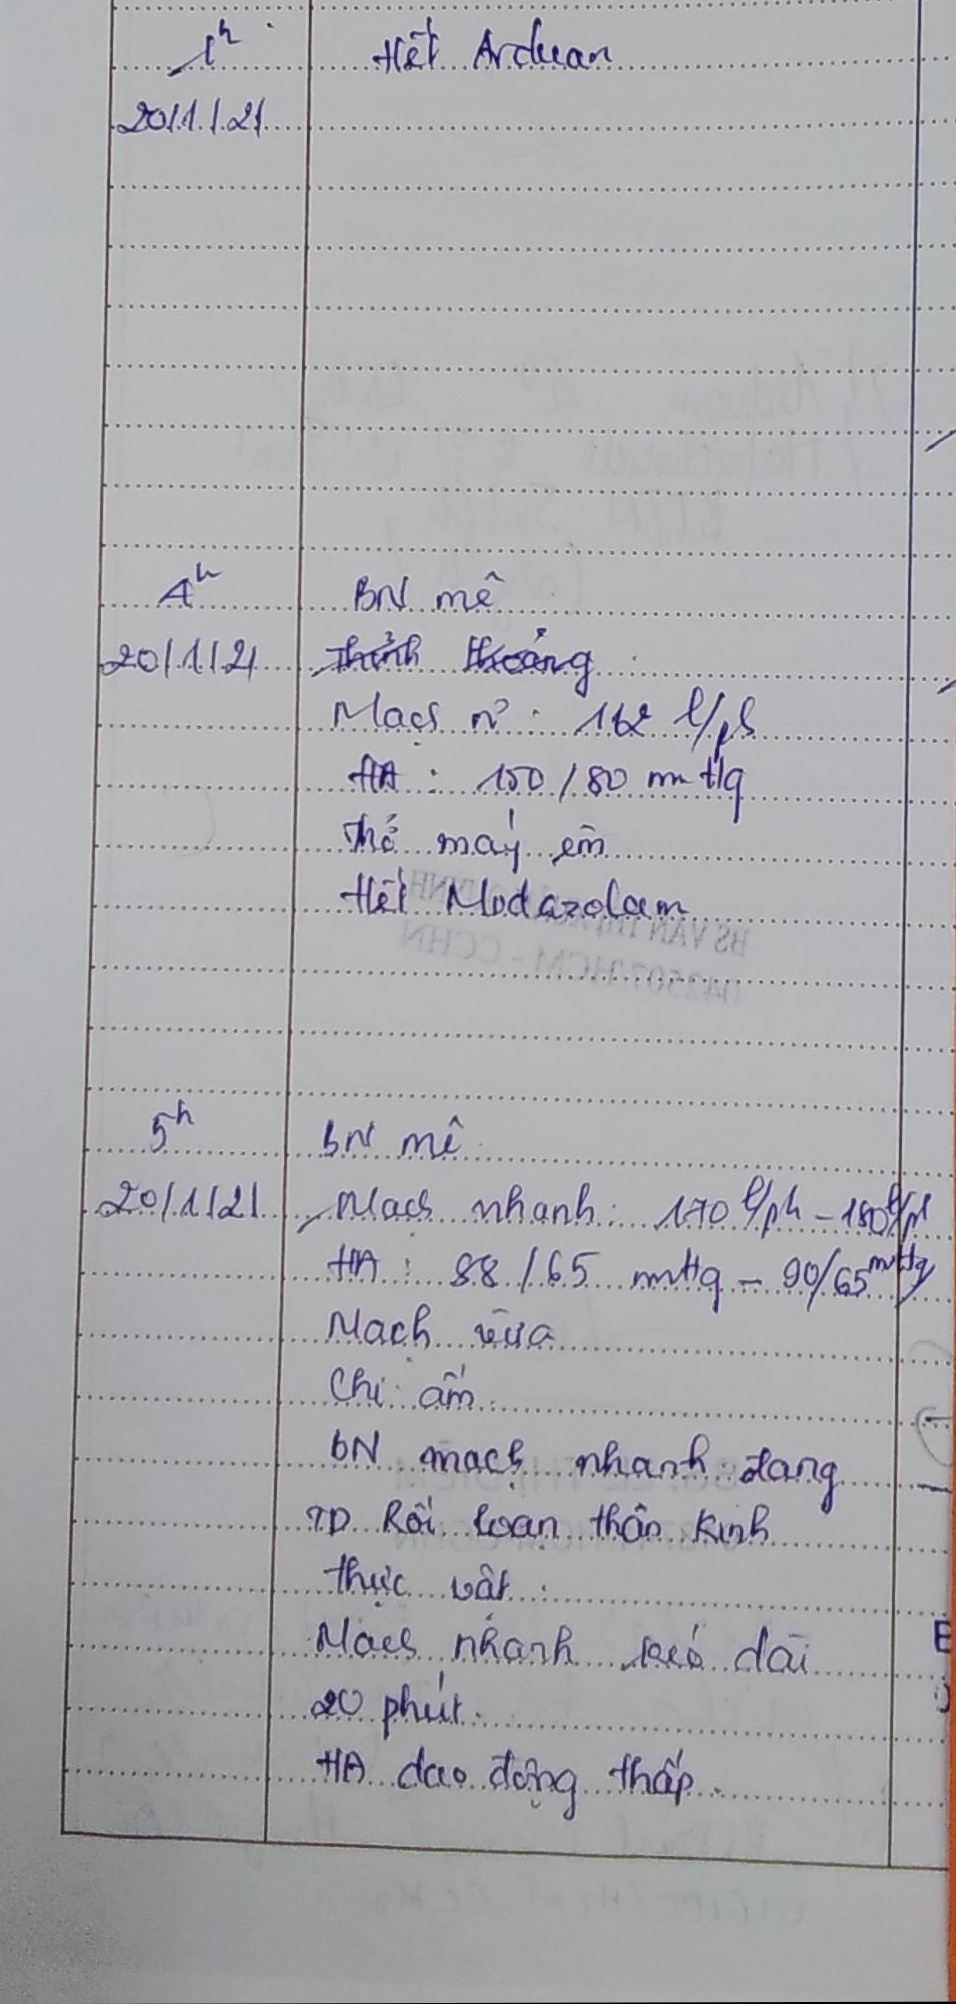 1h
Hết Arduan
20/1/21
4h
BN mê
20/1/21
Thỉnh thoảng
Mạch : 162 l/ph
HA : 100/80 mmHg
Thở máy êm
Hết Midazolam
5h
BN mê
20/1/21
Mạch nhanh: 170 l/ph - 180 l/ph
HA : 88/65 mmHg - 90/65 mmHg
Mạch vừa
Chi ấm
BN mạch nhanh đang
TD Rối loạn thần kinh
thực vật.
Mạch nhanh kéo dài
20 phút.
HA dao động thấp.